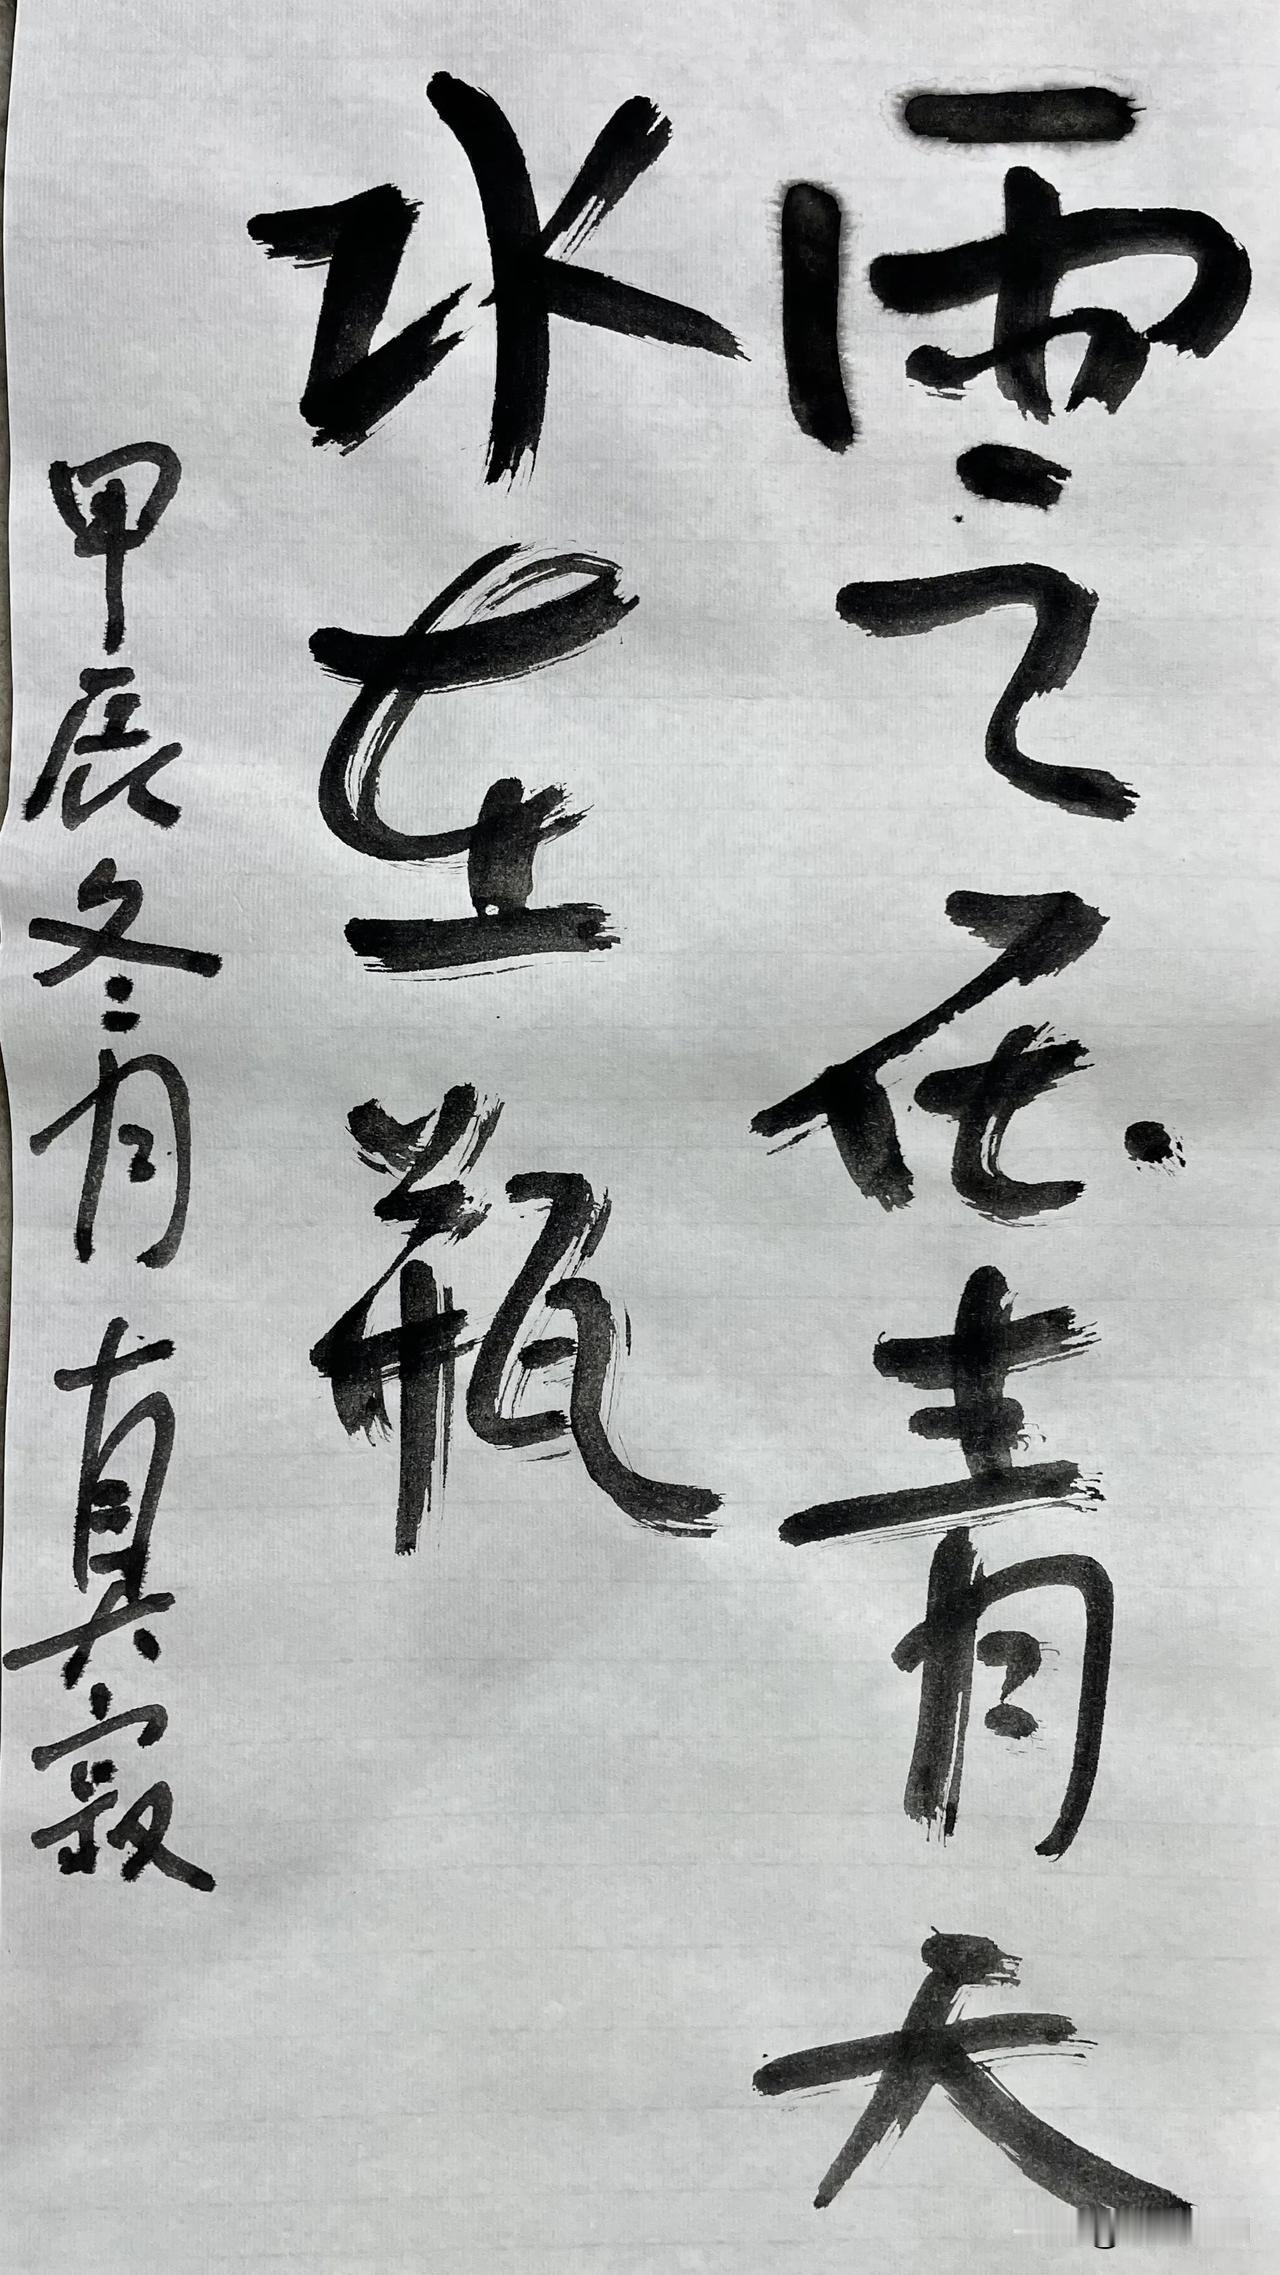 雲在青天
水在瓶
甲辰冬月真寂